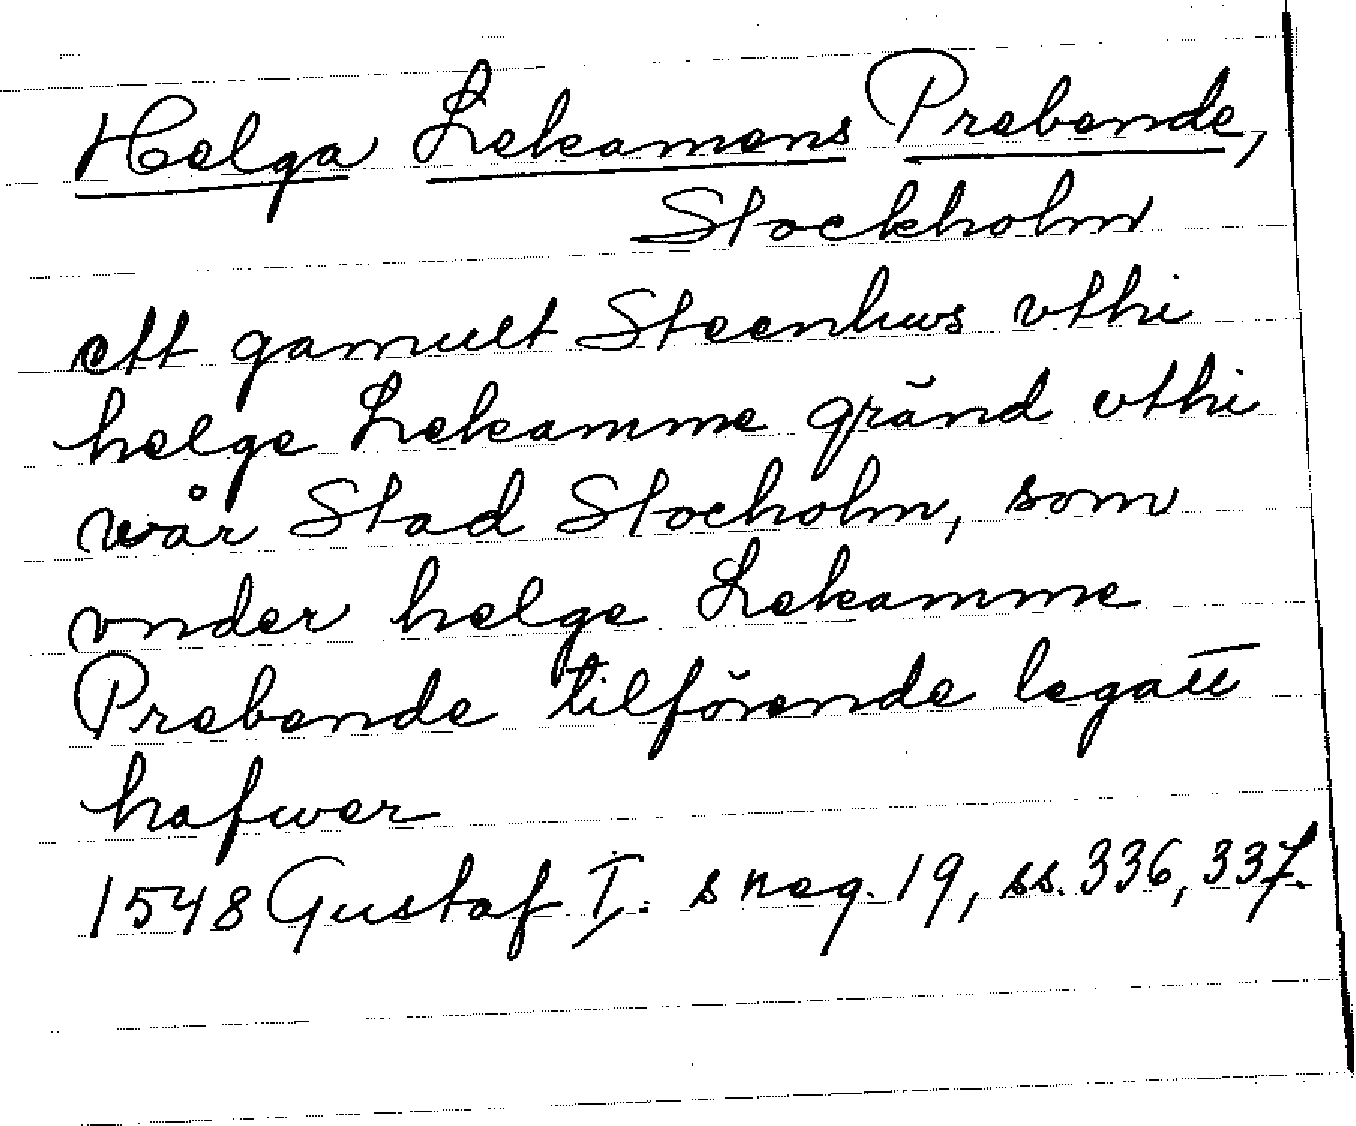 Helga Lekamens Prebende,
Stockholm
ett gamult Steenhws vthi
helge Lekamme gränd vthi
wår Stad Stocholm, som
vnder helge Lekamme
Prebende tilförende legatt
hafwer
1548 Gustaf I:s reg. 19, ss. 336, 337.